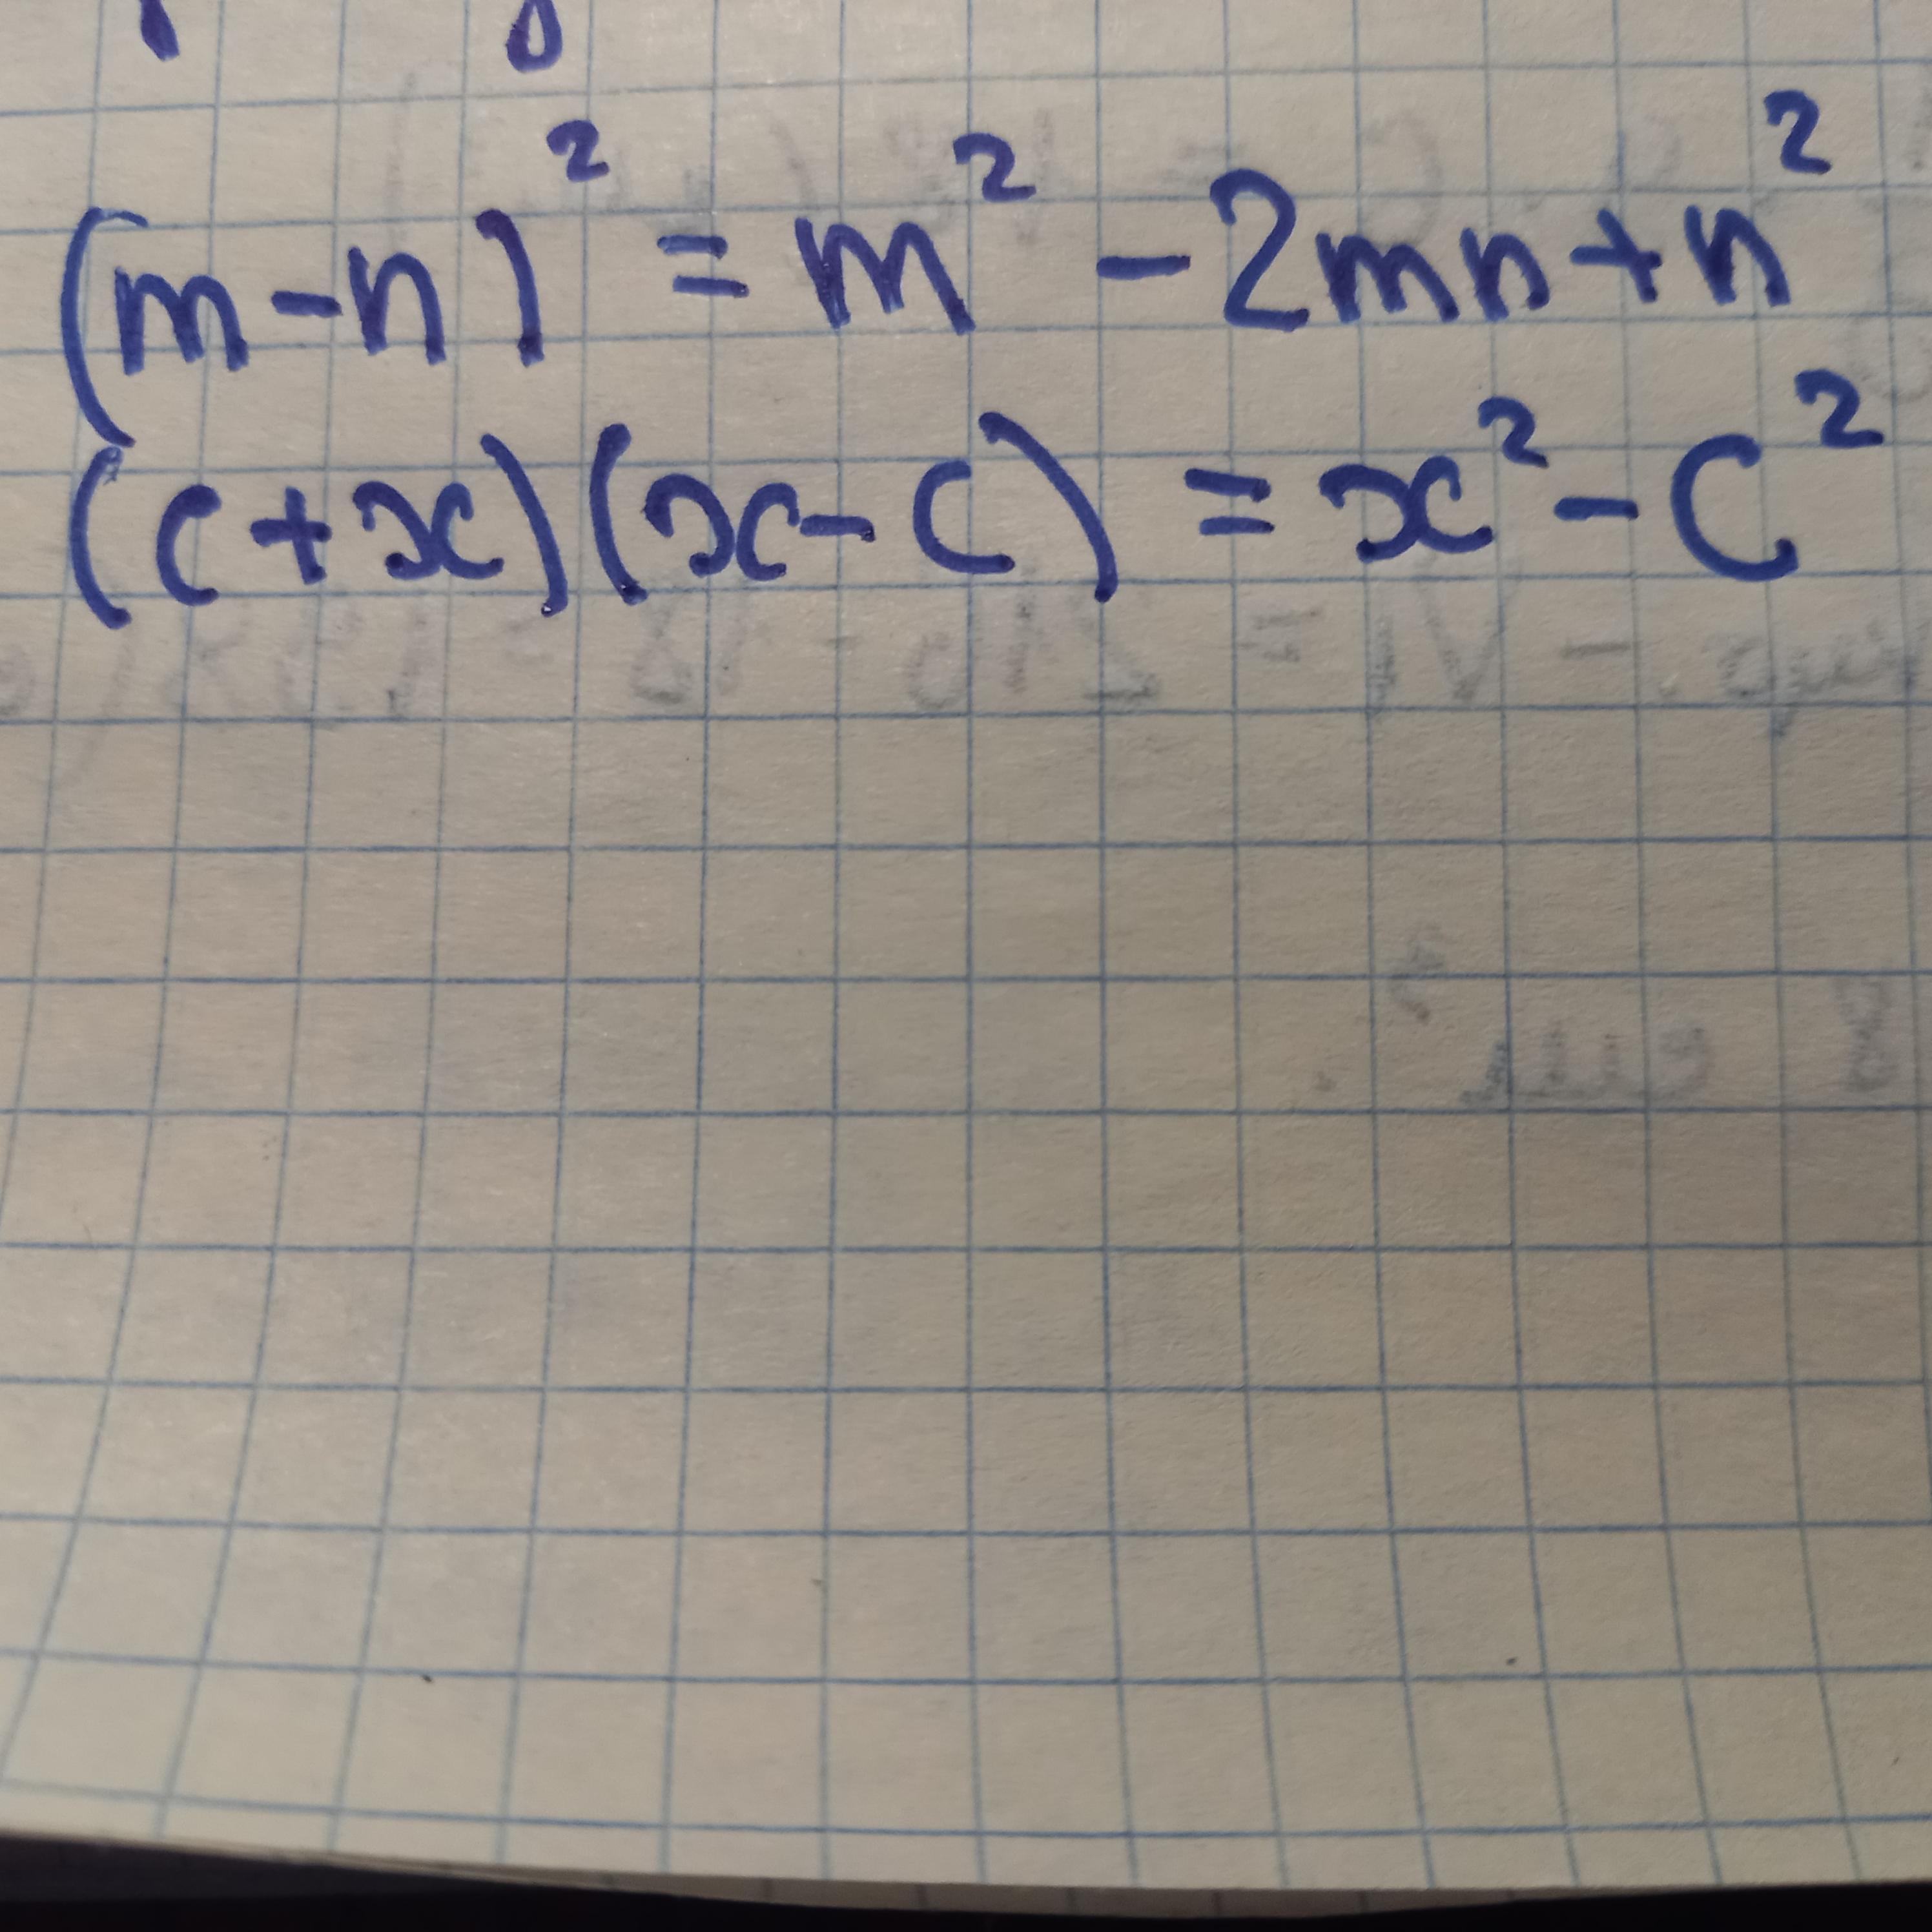 (m-n)² = m² - 2mn+n²
(c+x)(x-c) = x² - c²